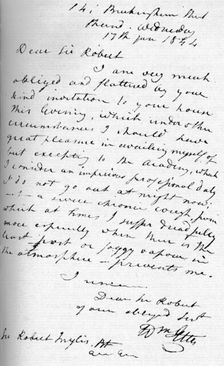 14, Buckingham Street
Strand, Wednesday
17th Jan 1844
Dear Sir Robert
I am very much
obliged and flattered by your
kind invitation to your house
this Evening, which under other
circumstances I should have
great pleasure in availing myself of
but excepting to the Academy, which
I consider an imperious professional duty
I do not go out at night now;
a severe chronic cough from
which at times I suffer dreadfully
more especially when there is the
least frost or foggy vapour in
the atmosphere prevents me.
I remain
Dear Sir Robert
your obliged Servt
Wm Etty
Sir Robert Inglis, Bt